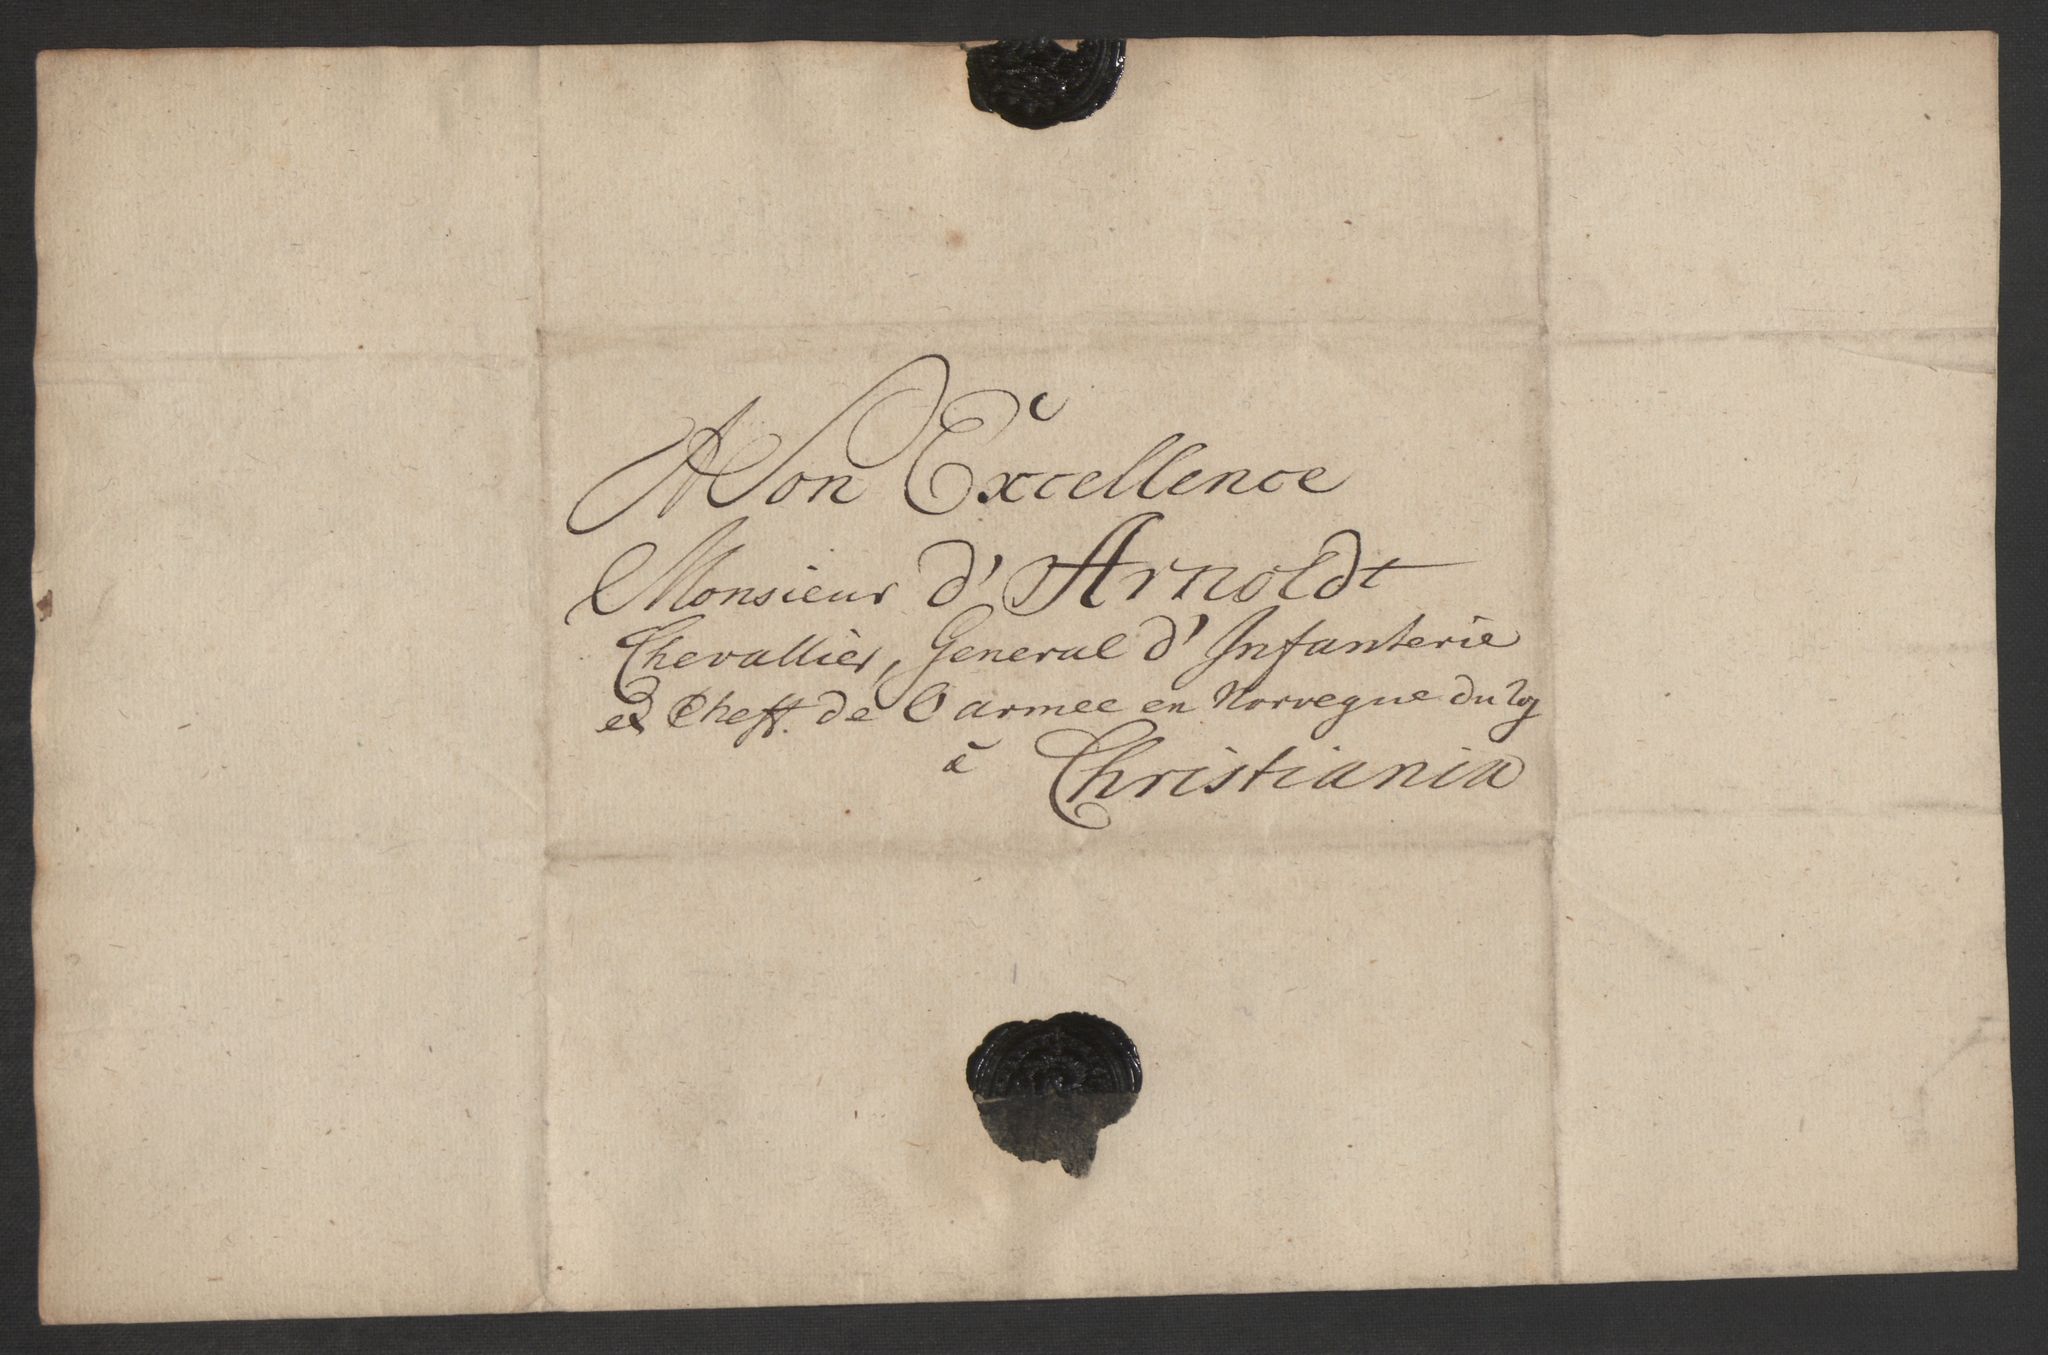 A Son Excellence
Monsieur d'Arnoldt
Chevallier, General d'Infanterie
et Cheff. de l'armee en Norvegue du Roy
à Christiania